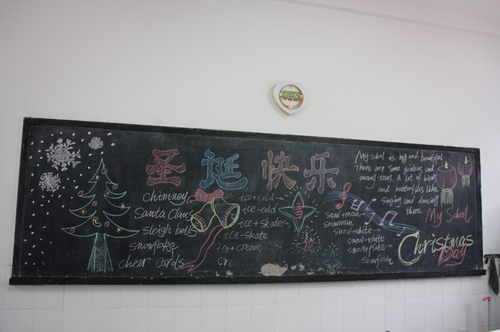 圣诞快乐
chimney
Santa Claus
sleigh bells
snowflake
cheer cards
ice+cold
ice-cold
ice+skate
ice-skate
icy+cream
snow+man
snowman
snow+white
snow-white
snow+flake
snowflake
My school is big and beautiful
There are some gardens and
many trees. A lot of birds
and butterflies like
singing and dancing
there.
My School
Christmas
Day